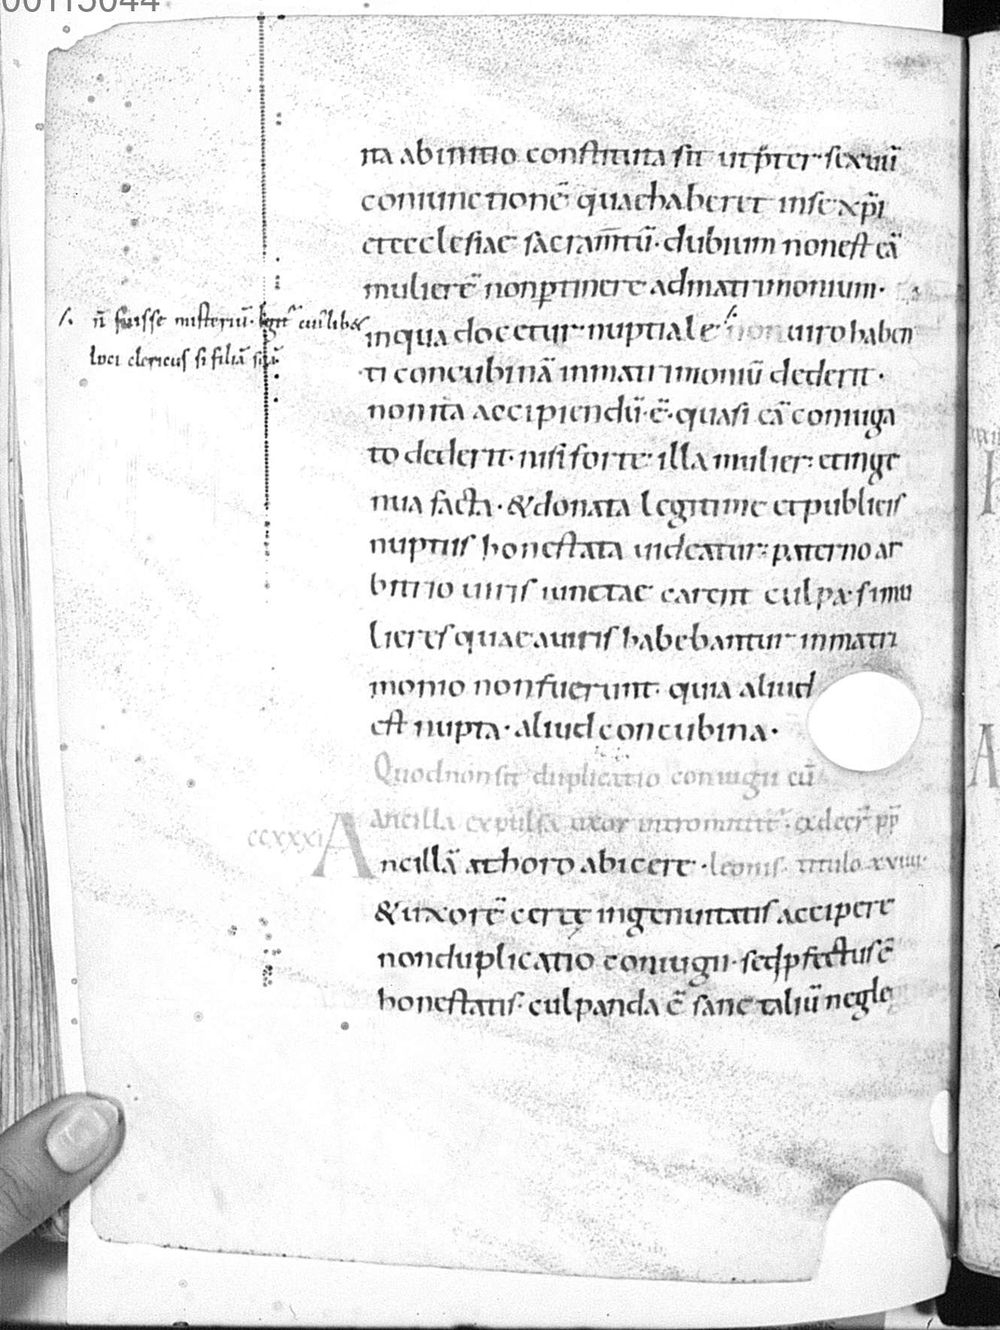 ita abinitio constituta sit utp̄ter sexuū
coniunctionē quae haberet inse xp̄i
et ecclesiae sacram̄tū· dubium non est eā
mulierē non ptinere ad matrimonium·
/. n̄ fuisse misteriū· igit᷑ cuiuslib&
loci clericus si filiā suā
in qua docetur nuptiale /. non uiro haben
ti concubinā in matrimoniū dederit·
non ita accipiendū ē· quasi eā coniuga
to dederit· nisi forte illa mulier et inge
nua facta· & donata legitime et publicis
nuptiis honestata uideatur: paterno ar
bitrio uiris iunctae carent culpa· si mu
lieres quae a uiris habebantur in matri
monio non fuerunt· quia aliud
est nupta· aliud concubina·
Quod non sit duplicatio coniugii cū
ancilla expulsa uxor intromittit᷑· ex decr̄ pp̄
ccxxxi Ancillā a thoro abicere· leonis· titulo xviiii·
& uxorē certę ingenuitatis accipere
non duplicatio coniugii· sed pfectus ē
honestatis· culpanda ē sane taliū negle